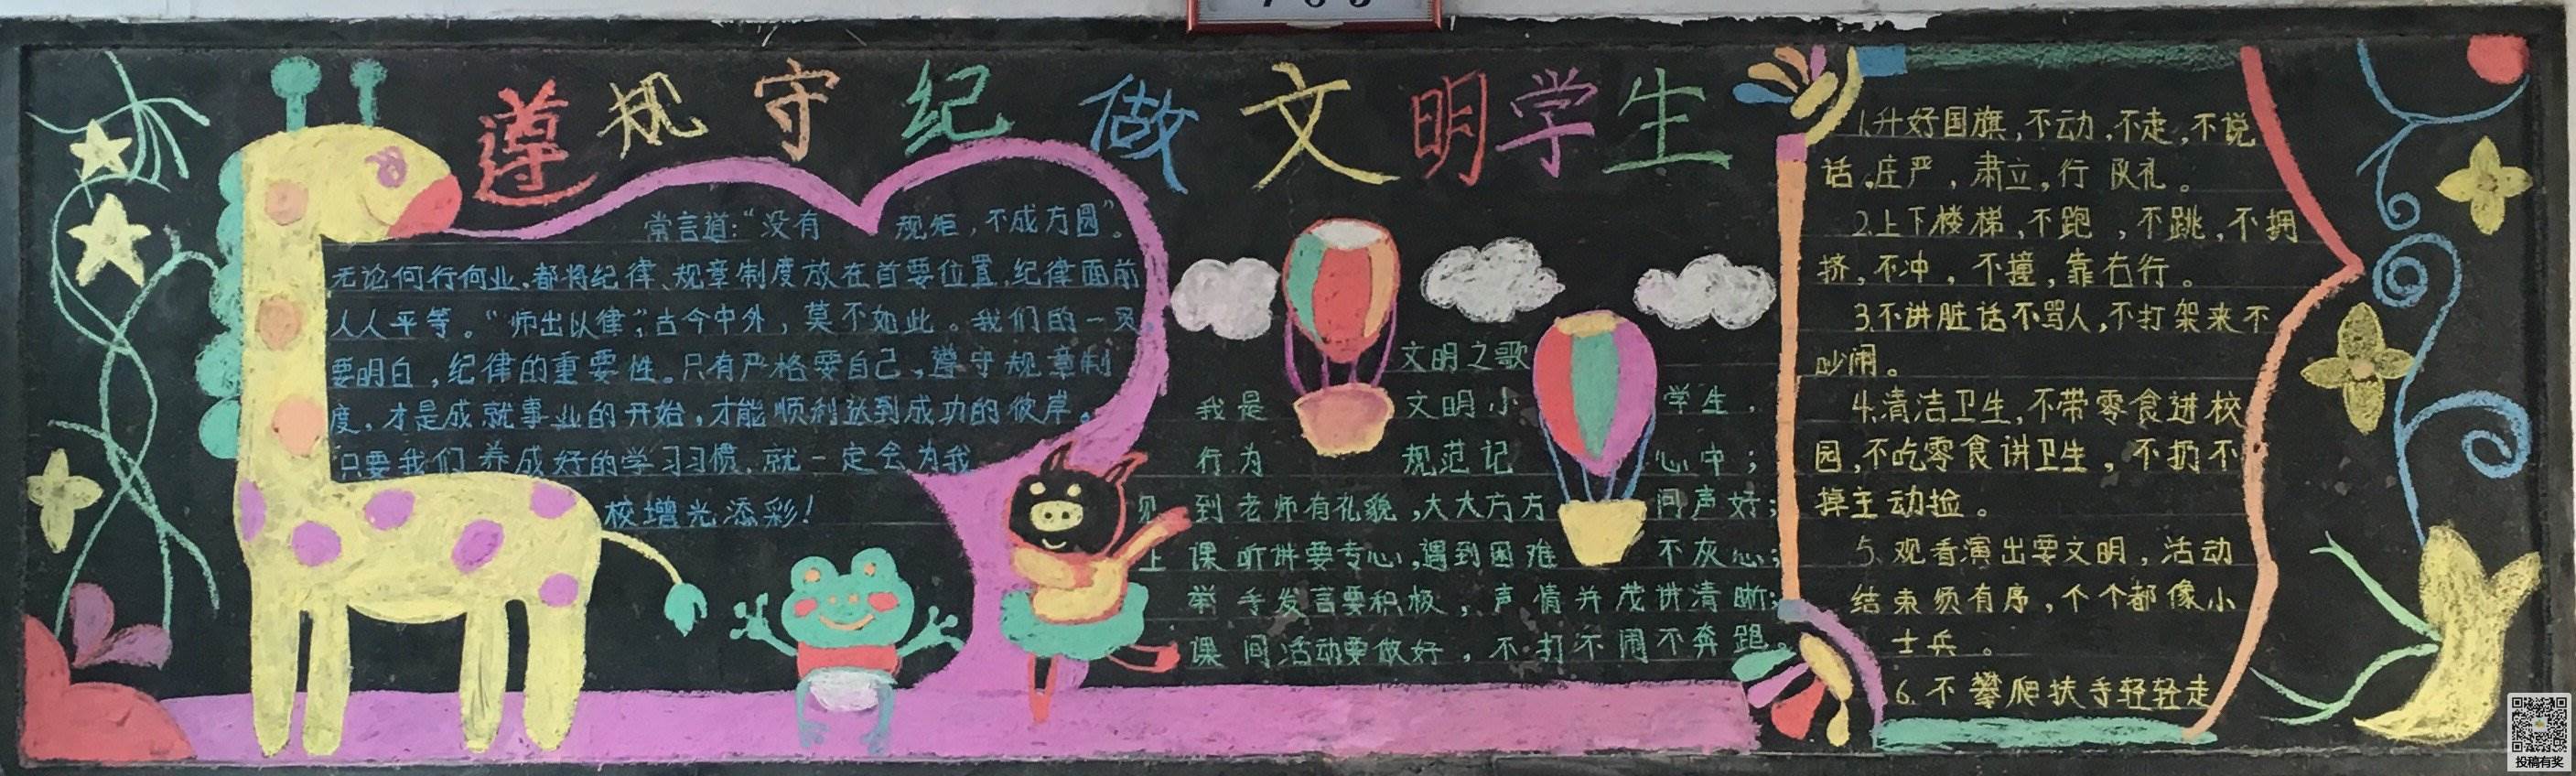 遵规守纪做文明学生
常言道:“没有规矩,不成方圆”。
无论何行何业,都将纪律、规章制度放在首要位置,纪律面前
人人平等。“师出以律”,古今中外,莫不如此。我们的一员,
要明白,纪律的重要性。只有严格要自己,遵守规章制
度,才是成就事业的开始,才能顺利达到成功的彼岸。
只要我们养成好的学习习惯,就一定会为我
校增光添彩!
文明之歌
我是文明小学生,
行为规范记心中;
见到老师有礼貌,大大方方问声好;
上课听讲要专心,遇到困难不灰心;
举手发言要积极,声情并茂讲清晰;
课间活动要做好,不打不闹不奔跑。
1.升好国旗,不动,不走,不说
话,庄严,肃立,行队礼。
2.上下楼梯,不跑,不跳,不拥
挤,不冲,不撞,靠右行。
3.不讲脏话不骂人,不打架来不
吵闹。
4.清洁卫生,不带零食进校
园,不吃零食讲卫生,不扔不
掉主动捡。
5.观看演出要文明,活动
结束须有序,个个都像小
士兵。
6.不攀爬扶手轻轻走
投稿有奖